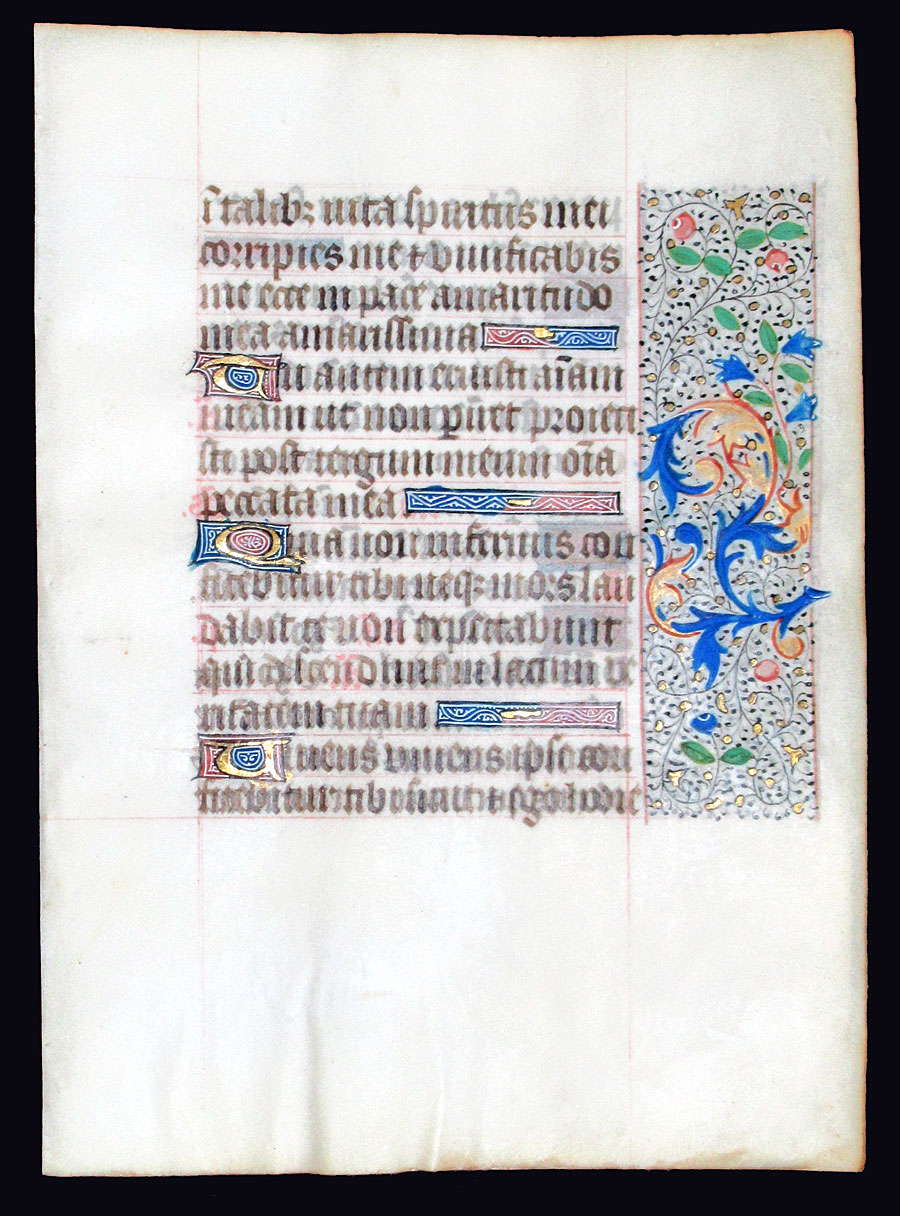 ī talibꝫ uita spiritus mei
corripies me et viuificabis
me ecce in pace amaritudo
mea amarissima
Tu autem eruisti aīam
meam ut non periret proiec
sti post tergum meum oīa
peccata mea
Quia non infernus con
fitebitur tibi neqꝫ mors lau
dabit te non expectabunt
qui descendunt in lacum ue
ritatem tuam
Viuens viuens ipse con
fitebitur tibi sicut et ego hodie